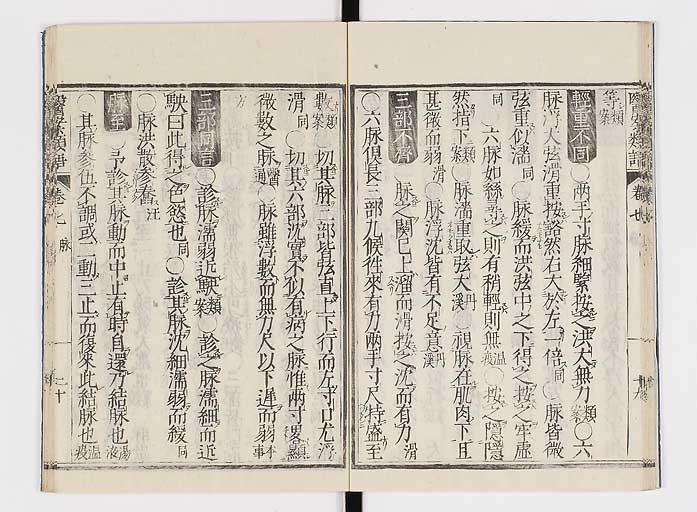 醫案類語 卷七
等 類案
輕重不同 ○兩手寸脉細緊按之洪大無力 類案 ○六
脉浮大弦滑重按豁然右大於左一倍 同 ○脉皆微
弦重似濇 同 ○脉緩而洪弦中之下得之按之牢虛
同 六脉如絲尋之則有稍輕則無 瘟疫 ○按之隱隱
然指下 類案 ○脉濇重取弦大 丹溪 ○視脉在肌肉下且
甚微而弱 滑 ○脉浮沈皆有不足意 丹溪
三部不齊 脉之關已上溜而滑按之沈而有力 滑
○六脉俱長三部九候徃來有力兩手寸尺特盛至
數 類案 ○切其脉二部皆弦直上下行而左寸口尤浮
滑 同 ○切其六部沈實不似有病之脉惟兩寸畧顯
微數之脉 醫通 ○脉雖浮數而無力尺以下遲而弱 本事
方
三部同言 ○診脉濡弱近駃 類案 ○診之脉濡細而近
駃曰此得之色慾也 同 ○診其脉沈細濡弱而緩 同
○脉洪散參舂 汪
脉至 予診其脉動而中止有時自還乃結脉也 湯液
○其脉參伍不調或二動三止而後來此結脉也 瘟疫
醫案類語 卷七 脉 二十